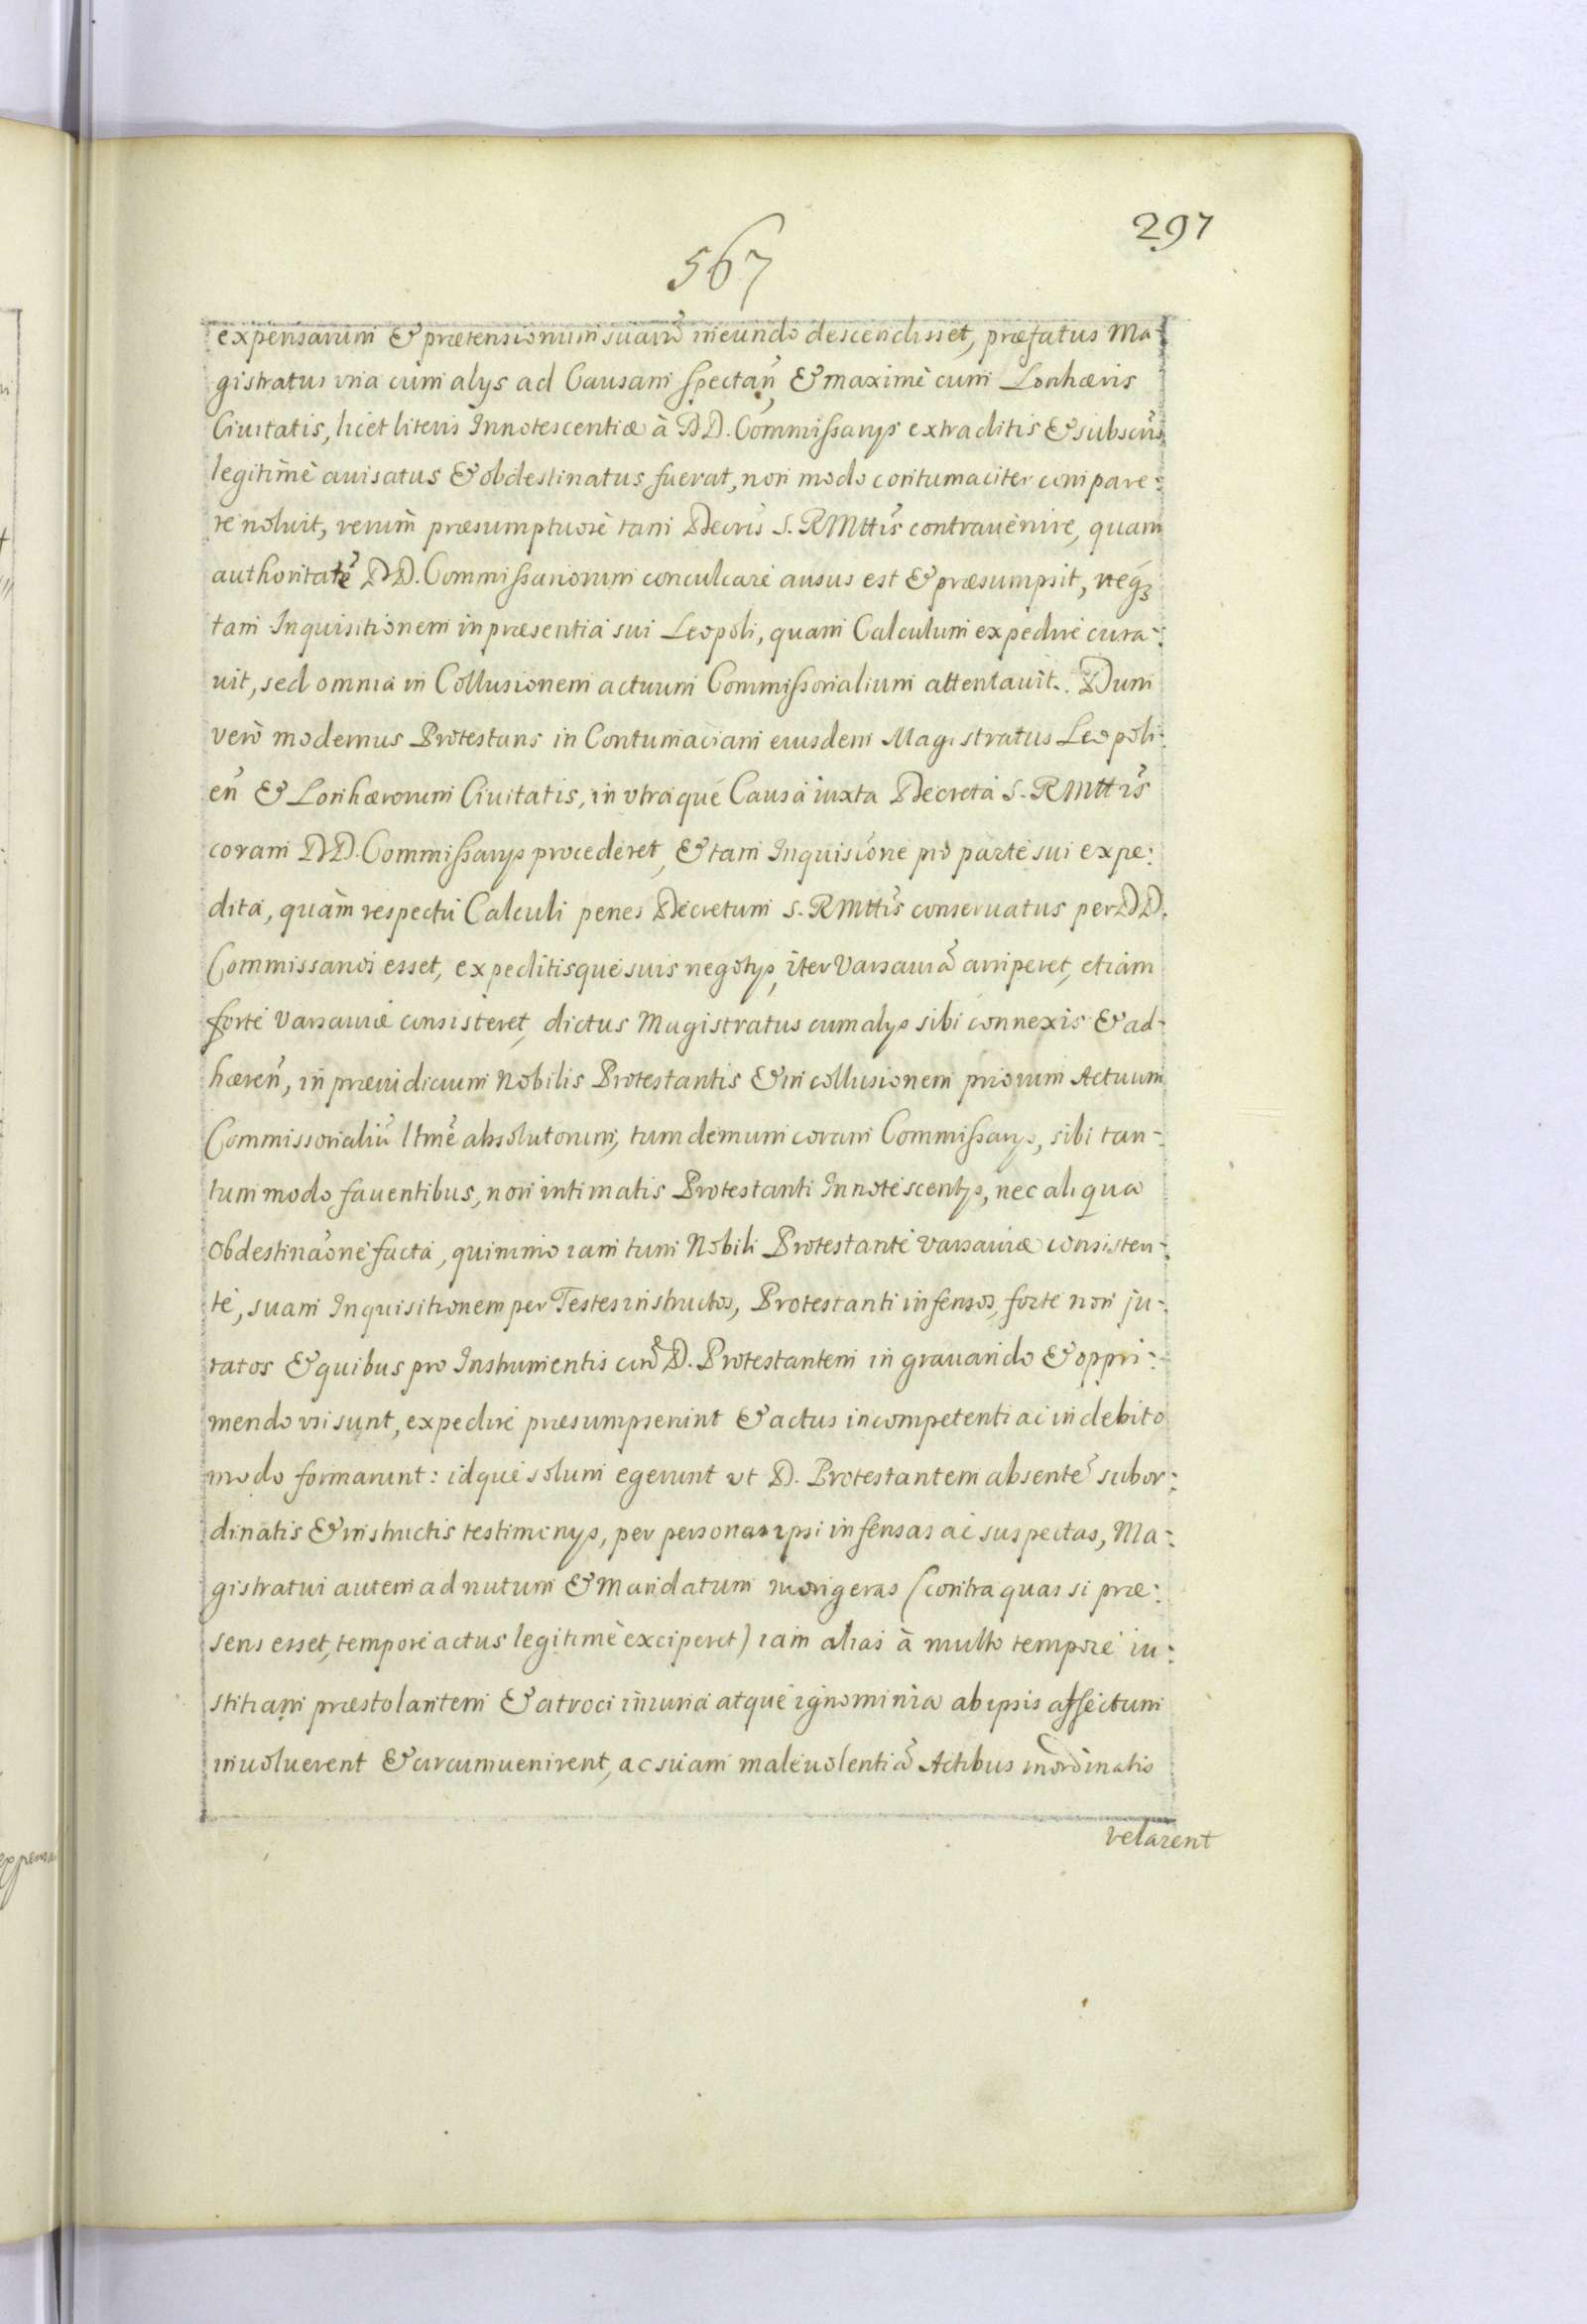 297
567
expensarum & prætensionum suarũ ineundo descendisset, præfatus Ma-
gistratus vna cum alys ad Causam spectañ, & maximè cum Lonhæris
Ciuitatis, licet literis Innotescentiæ à DD. Commissarys extraditis & subscris
legitimè auisatus & obdestinatus fuerat, non modo contumaciter compare:
re noluit, verum præsumptuosè tam Decris S. RMttis contrauenire, quam
authoritatẽ DD. Commissariorum conculcare ausus est & præsumpsit, neqꝫ
tam Inquisitionem in præsentia sui Leopoli, quam Calculum expedire cura-
uit, sed omnia in Collusionem actuum Commissorialium attentauit. Dum
verò modernus Protestans in Contumaciam eiusdem Magistratus Leopoli-
eñ & Lonhærorum Ciuitatis, in vtraque Causa iuxta Decreta S. RMttis
coram DD. Commissarys procederet, & tam Inquisióne pro parte sui expe:
dita, quàm respectu Calculi penes Decretum S. RMttis conseruatus per DD.
Commissarios esset, expeditisque suis negotys, iter Varsauiã arriperet, etiam
forte Varsauiæ consisteret, dictus Magistratus cum alys sibi connexis & ad-
hæreñ, in præiudicium Nobilis Protestantis & in collusionem priorum Actuum
Commissorialiũ ltmẽ absolutorum, tum demum coram Commissarys, sibi tan-
tummodo fauentibus, non intimatis Protestanti Innotescentys, nec aliqua
obdestinaóne facta, quinimo iam tum Nobili Protestante Varsauiæ consisten-
te, suam Inquisitionem per Testes instructos, Protestanti infensos, forte non ju-
ratos & quibus pro Instrumentis cirũ D. Protestantem in grauando & oppri:
mendo vsi sunt, expedire præsumpserint & actus incompetenti ac indebito
modo formarunt: idque solum egerunt vt D. Protestantem absentẽ subor:
dinatis & instructis testimonys, per personas ipsi infensas ac suspectas, Ma:
gistratui autem ad nutum & Mandatum morigeras (contra quas si præ:
sens esset, tempore actus legitimè exciperet) iam alias à multo tempore iu:
stitiam præstolantem & atroci iniuria atque ignominia ab ipsis affectum
inuoluerent & circumuenirent, ac suam maleuolentiã Actibus inordinatis
velarent